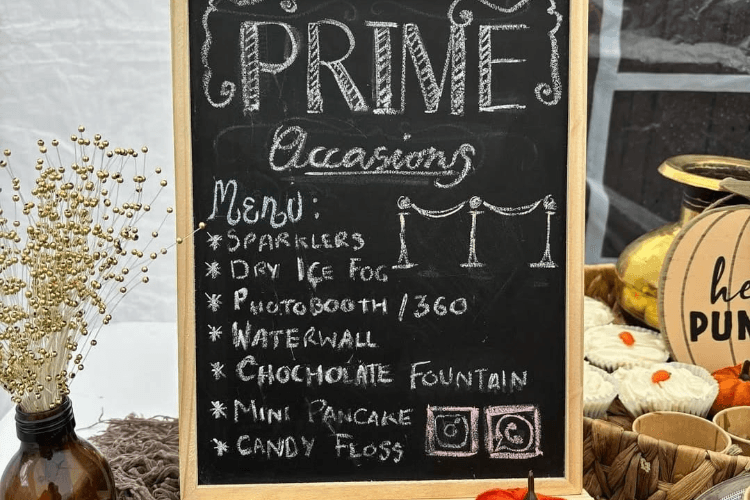 PRIME
Accasions
MENU:
* SPARKLERS
* DRY ICE FOG
* PHOTOBOOTH / 360
* WATERWALL
* CHOCHOLATE FOUNTAIN
* MINI PANCAKE
* CANDY FLOSS
he
PUN